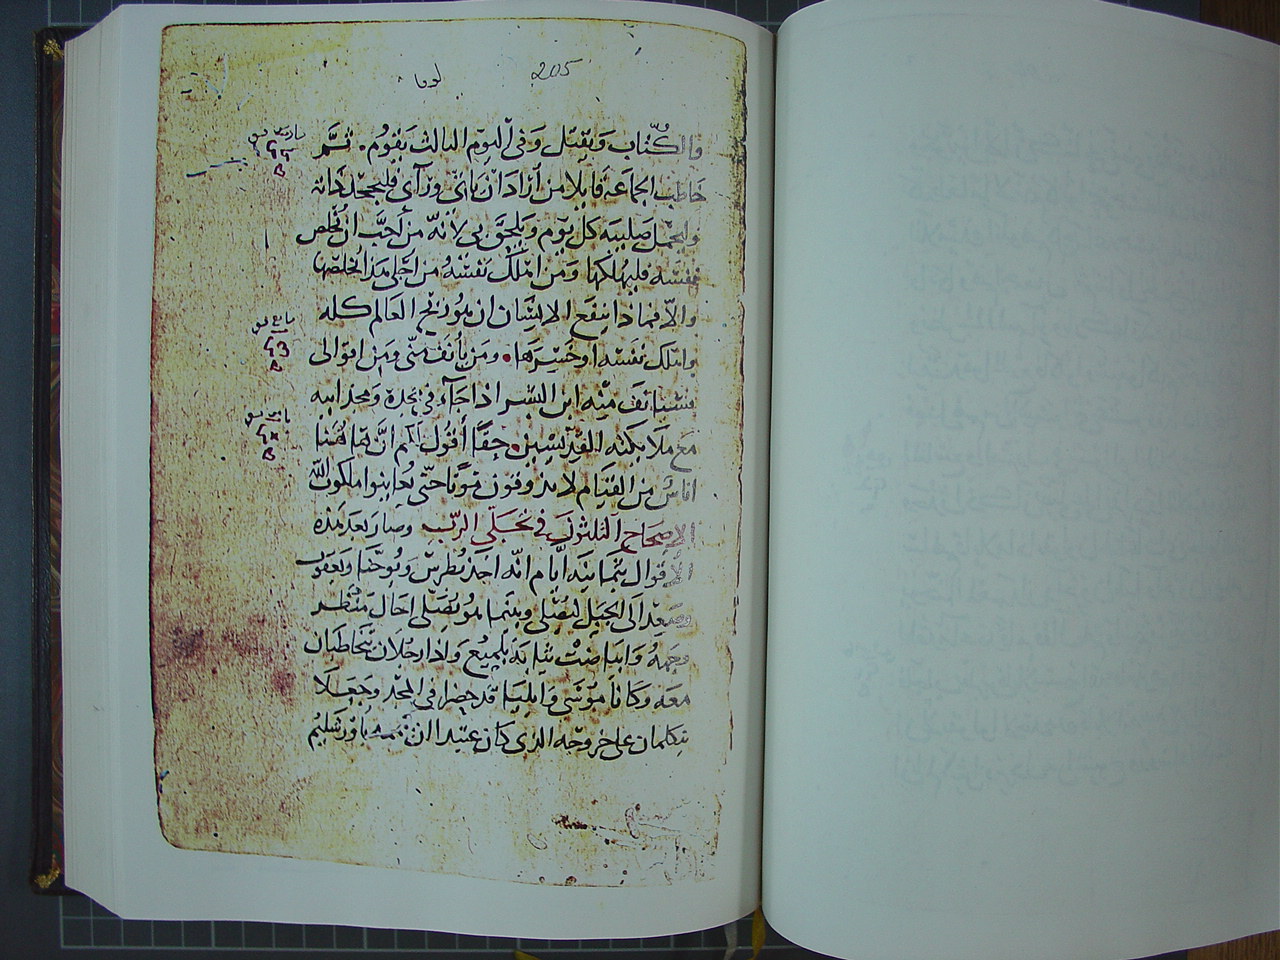 لوقا 205
والكُتّاب وَيقتَل وَفى اليَوم الثالث يَقوُم. ثمَّ
خَاطب الجمَاعَة قايلا من اَرَادَ ان يَاتى ورَآى فليجحد ذاته
وليحمل صَليبَه كل يوم وَيلحق بى لانّه من أحَبَّ ان يُخلص
نفسَه فليهلكها وَمَن اهلك نفسَهُ من اجلى هَذا يخلصها
والاّ فماذا ينفَع الانسَان ان هو ربح العَالم كله
واهلك نفسَه او خسِرَها. ومَن يأنف منّى ومَن اقوالى
فسَيَانَف مِنه ابن البشر اذا جَآء فى مجده وَمجد ابيه
مَع مَلايكته القدّيسين. حقًا أَقُول لكم انَّ هَاهُنا
اناسٌ من القيَام لا يذوقون مَوتًا حتّى يُعاينوا ملكوت اللّه
الاصحَاح الثلثون فى تجلى الربّ وصار بَعدَ هَذه
الاُقوال بثمانيَة ايّام انّه اخذ بُطرس وَيُوحَنا ويَعقوب
وصَعِد الَى الجبَل ليُصَلى وبينما هُو يُصَلى احال مَنظر
وجههُ وَابياضتْ ثيابَه تلميع وَاذا رجُلان يتخاطبَان
معَه وكانا موُسَى وَايليَا قد حضرا فى المجد وجَعَلا
يتكلمان على خروجه الذى كان عتيدا ان يتممه باورشليمُ